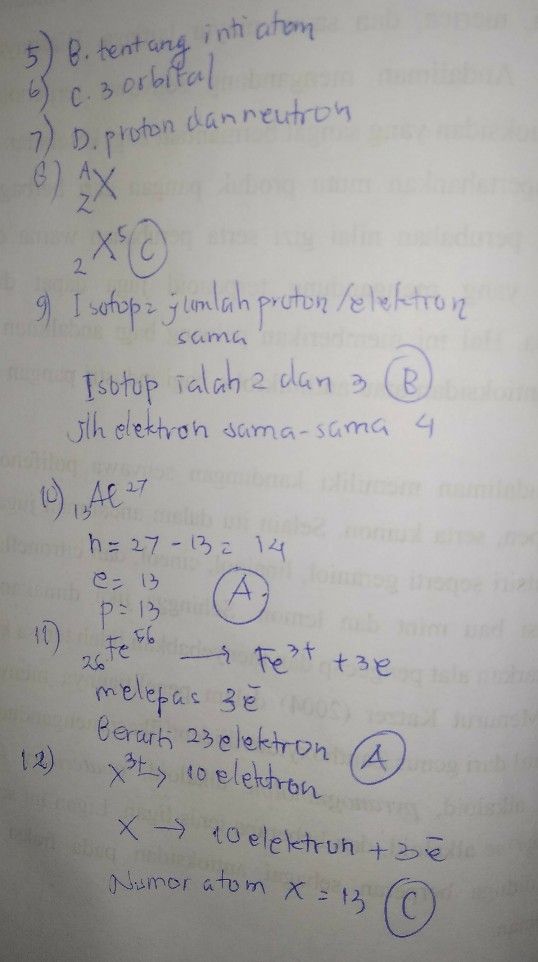 5) B. tentang inti atom
6) C. 3 orbital
7) D. proton dan neutron
8) ᴬ X
Z
₂X⁵ C
9) Isotop = jumlah proton/elektron
sama
Isotop ialah 2 dan 3 B
Jlh elektron sama-sama 4
10) ₁₃Al²⁷
n = 27 - 13 = 14
e = 13
p = 13 A
11) ₂₆Fe⁵⁶ → Fe³⁺ + 3e
melepas 3ē
Berarti 23 elektron A
12) X³⁺ → 10 elektron
X → 10 elektron + 3ē
Nomor atom X = 13 C